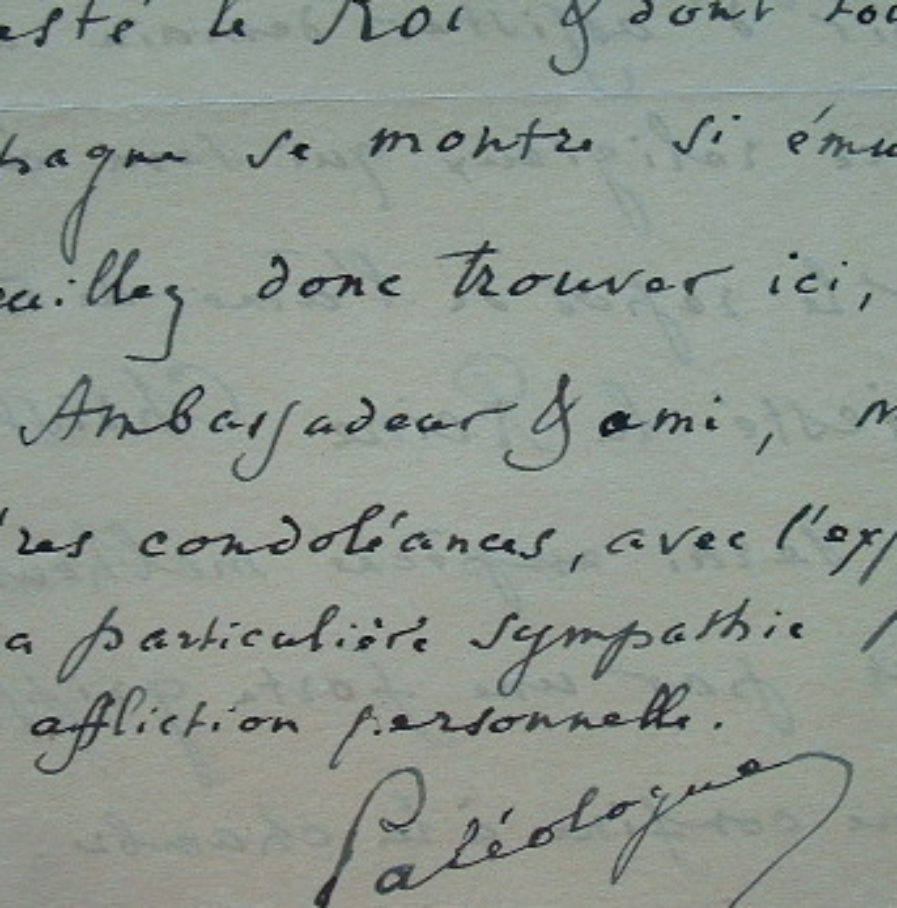 esté le Roi & dont tou
pagne se montre si ému
euillez donc trouver ici,
Ambassadeur & ami, m
ères condoléances, avec l'exp
a particulière sympathie p
affliction personnelle.
Paléologue